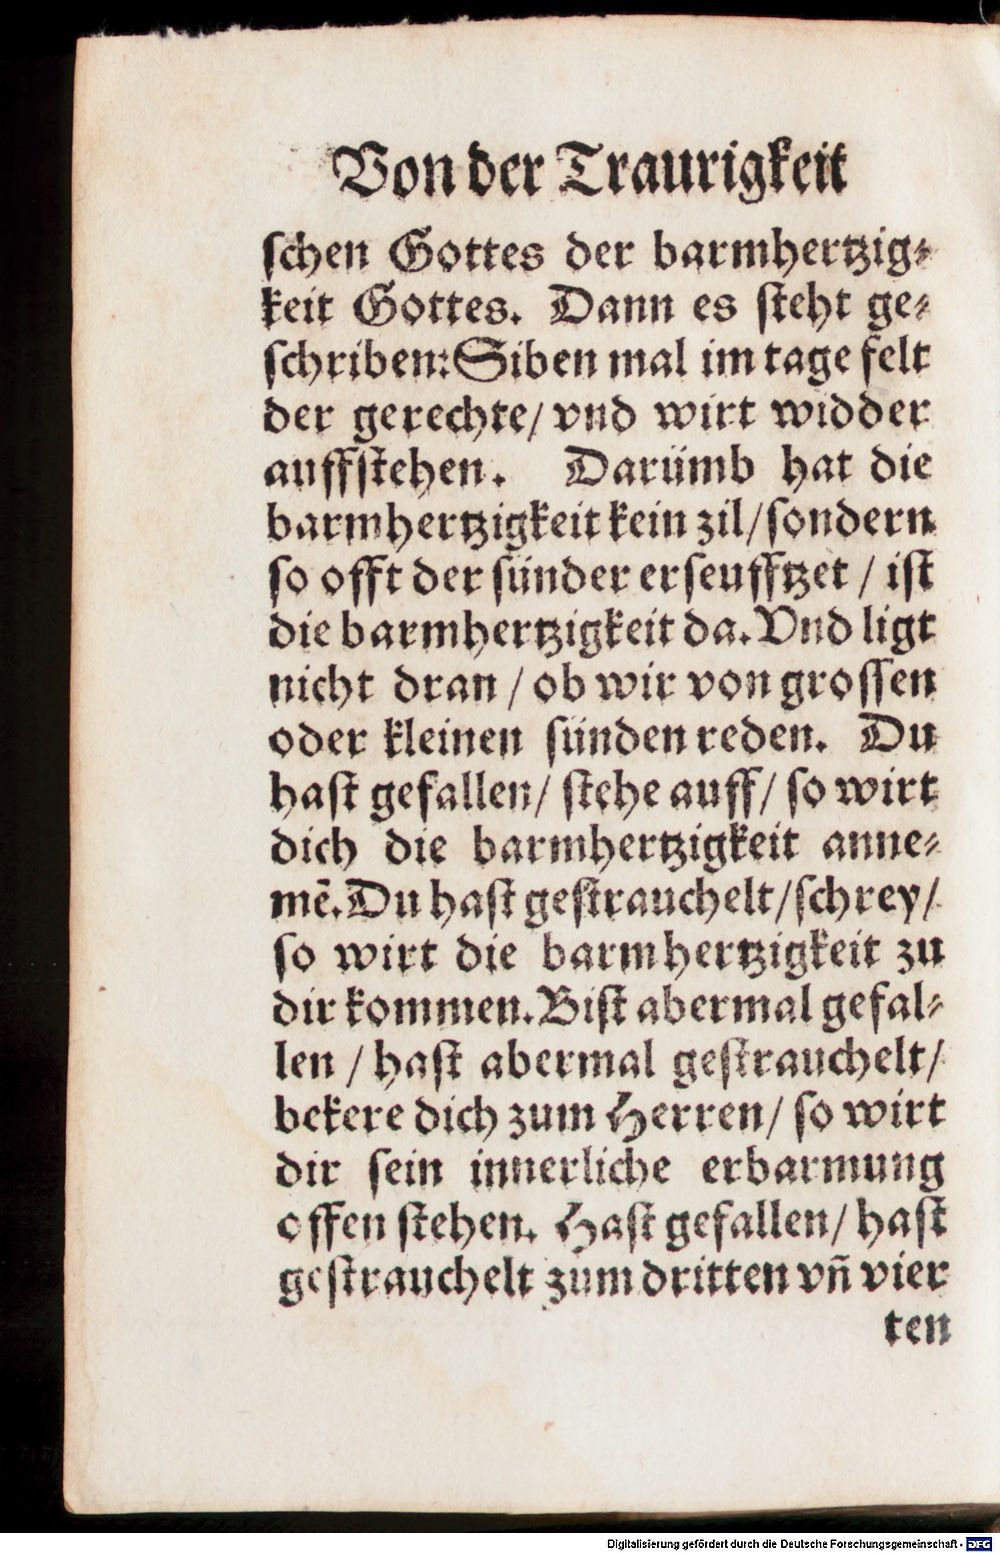 Von der Traurigkeit
schen Gottes der barmhertzig⸗
keit Gottes. Dann es steht ge⸗
schriben: Siben mal im tage felt
der gerechte/ vnd wirt widder
auffstehen. Darümb hat die
barmhertzigkeit kein zil/ sondern
so offt der sünder erseufftzet / ist
die barmhertzigkeit da. Vnd ligt
nicht dran / ob wir von grossen
oder kleinen sünden reden. Du
hast gefallen/ stehe auff/ so wirt
dich die barmhertzigkeit anne⸗
mẽ. Du hast gestrauchelt/ schrey/
so wirt die barmhertzigkeit zu
dir kommen. Bist abermal gefal⸗
len / hast abermal gestrauchelt/
bekere dich zum Herren/ so wirt
dir sein innerliche erbarmung
offen stehen. Hast gefallen/ hast
gestrauchelt zum dritten vñ vier
ten
Digitalisierung gefördert durch die Deutsche Forschungsgemeinschaft - DFG